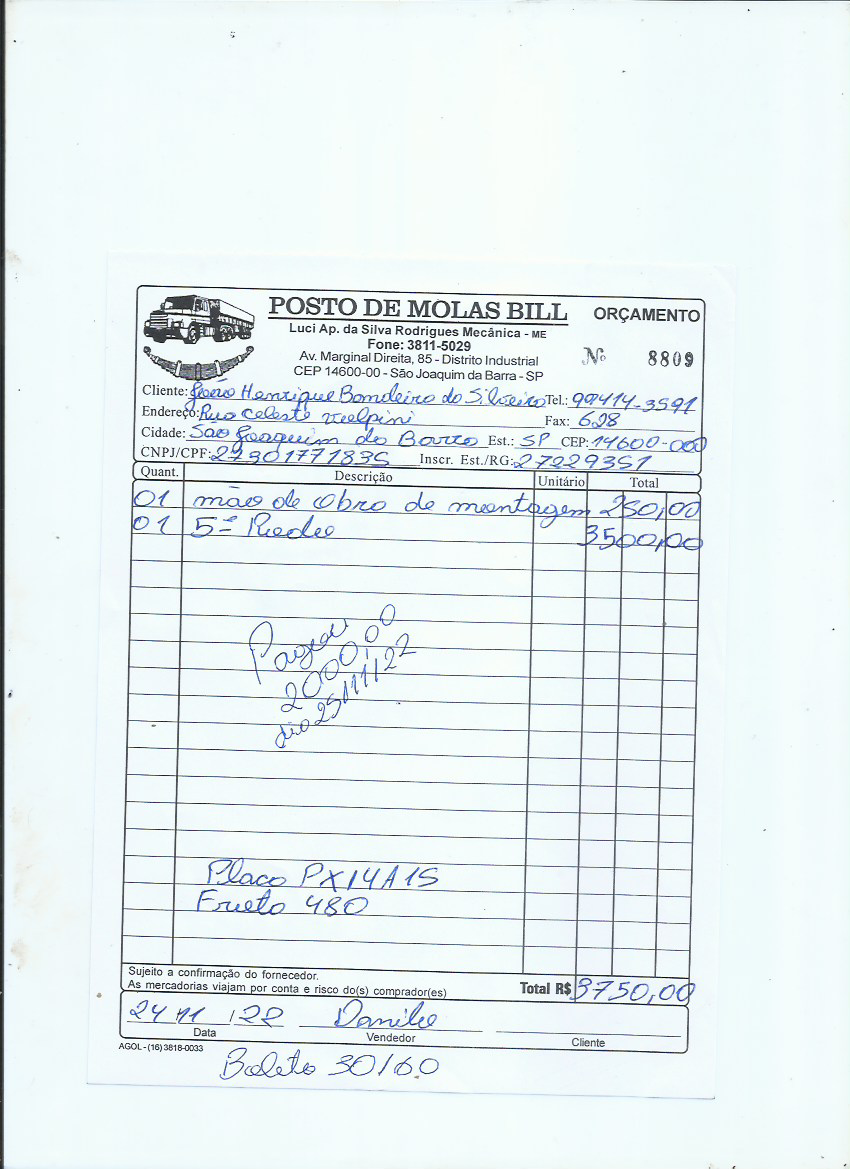 POSTO DE MOLAS BILL ORÇAMENTO
Luci Ap. da Silva Rodrigues Mecânica - ME
Fone: 3811-5029
Av. Marginal Direita, 85 - Distrito Industrial Nº 8809
CEP 14600-00 - São Joaquim da Barra - SP
Cliente: João Henrique Bandeira da Silveira Tel.: 99414-3591
Endereço: Rua Celeste Fax: 628
Cidade: São Joaquim da Barra Est.: SP CEP: 14600-000
CNPJ/CPF: 27301771835 Inscr. Est./RG: 27229351
Quant. Descrição Unitário Total
01 mão de obra de montagem 250,00
01 5ª Roda 3500,00
2000,00
dia 25/11/22
Placa PX14A15
Frota 480
Sujeito a confirmação do fornecedor.
As mercadorias viajam por conta e risco do(s) comprador(es) Total R$ 3750,00
24 11 / 22 Danilo
Data Vendedor Cliente
AGOL - (16) 3818-0033
Boleto 30/60